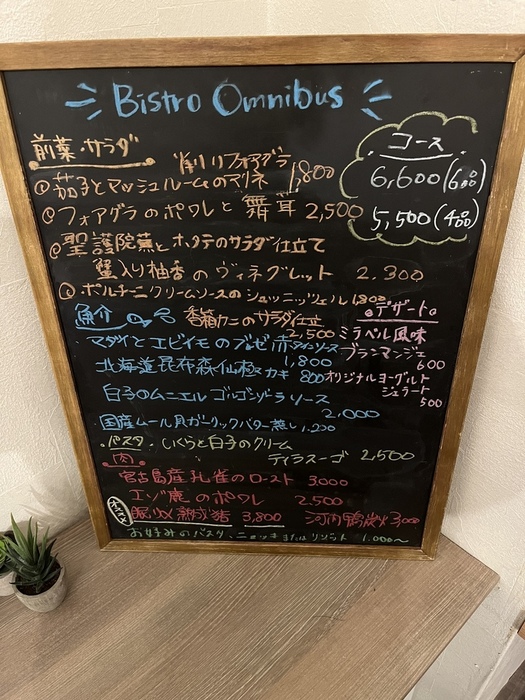 Bistro Omnibus
前菜・サラダ
削りフォアグラ
茄子とマッシュルームのマリネ 1,800
フォアグラのポワレと舞茸 2,500
聖護院蕪とホタテのサラダ仕立て
蟹入り柚香のヴィネグレット 2.300
ポルチーニクリームソースのシュニッツェル 1,800
香箱カニのサラダ仕立 2,500
コース
6,600(600)
5,500(400)
魚介
マダイとエビイモのブレゼ赤ワインソース
1,800
北海道昆布森仙極カキ 800
白子のムニエル ゴルゴンゾーラソース
2,000
国産ムール貝ガーリックバター蒸し 1,200
デザート
ミラベル風味
ブランマンジェ
600
オリジナルヨーグルト
ジェラート
500
パスタ・いくらと白子のクリーム
ディラスーゴ 2,500
肉
宮古島産孔雀のロースト 3,000
エゾ鹿のポワレ 2,500
オススメ
熟成猪 3,800
河内鴨炭火 3,000
お好みのパスタ、ニョッキまたはリゾット 1,000〜